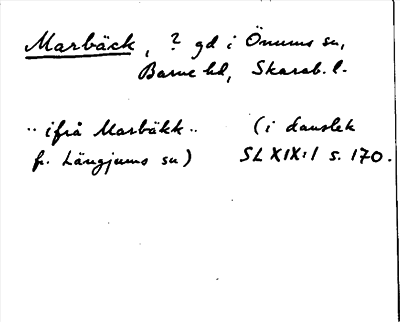 Marbäck, ? gd i Önums sn,
Barne hd, Skarab. l.
.. ifrå Marbäkk .. (i danslek
fr. Längjums sn) SL XIX:1 s. 170.